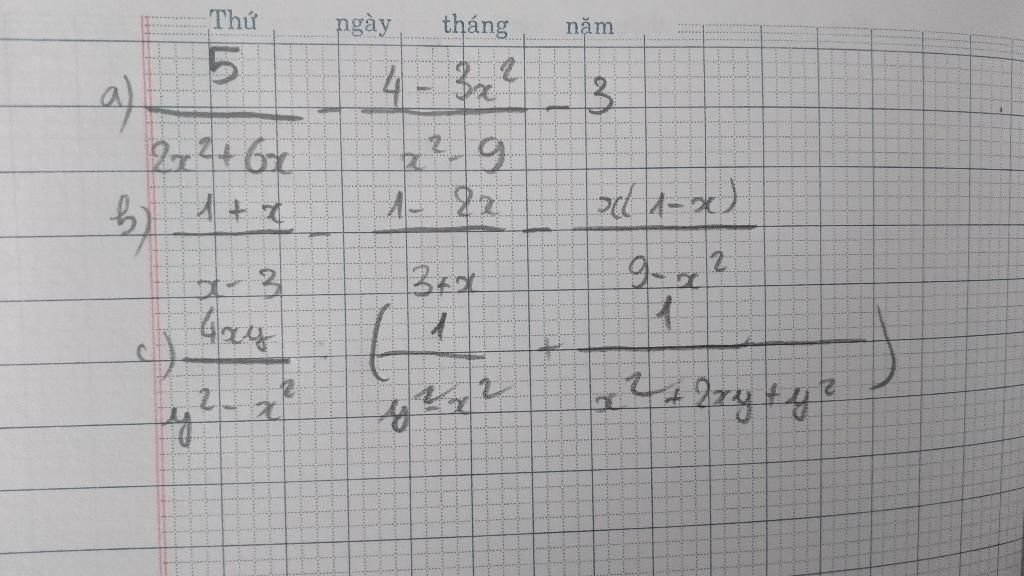 Thứ ngày tháng năm
a) 5/(2x² + 6x) - (4 - 3x²)/(x² - 9) - 3
b) (1 + x)/(x - 3) - (1 - 2x)/(3 + x) - x(1 - x)/(9 - x²)
c) 4xy/(y² - x²) : (1/(y² - x²) + 1/(x² + 2xy + y²))